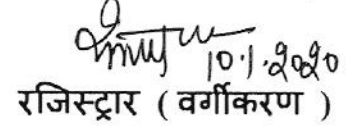 10.1.2020
रजिस्ट्रार ( वर्गीकरण )